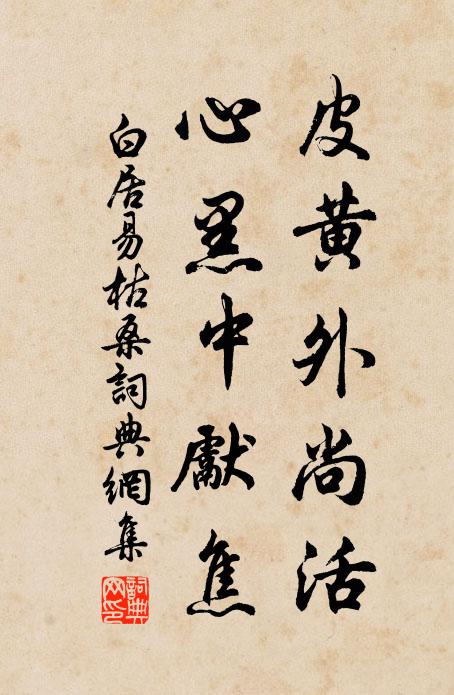 皮黃外尚活
心黑中獻焦
白居易枯桑詞典網集
詞典
网印